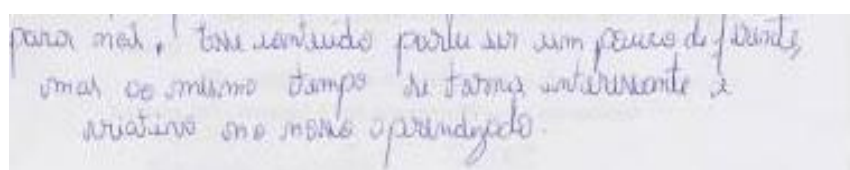 para nós, esse conteúdo parte ser um pouco diferente,
mas ao mesmo tempo se torna interessante e
criativo no nosso aprendizado.